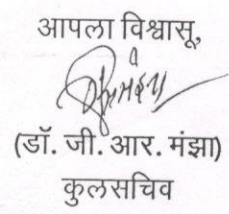 आपला विश्वासू,
(डॉ. जी. आर. मंझा)
कुलसचिव